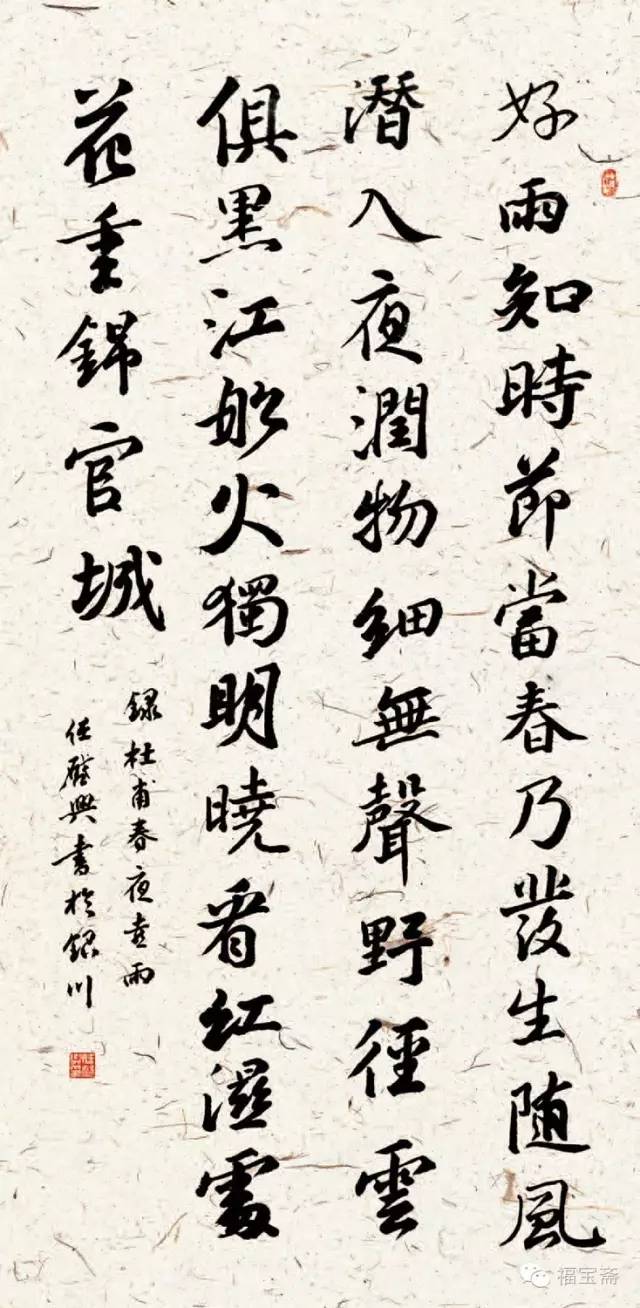 好雨知時節當春乃發生随風
潛入夜潤物細無聲野徑雲
俱黑江船火獨明曉看紅濕處
花重錦官城
録杜甫春夜喜雨
任啓興書於銀川
福宝斋